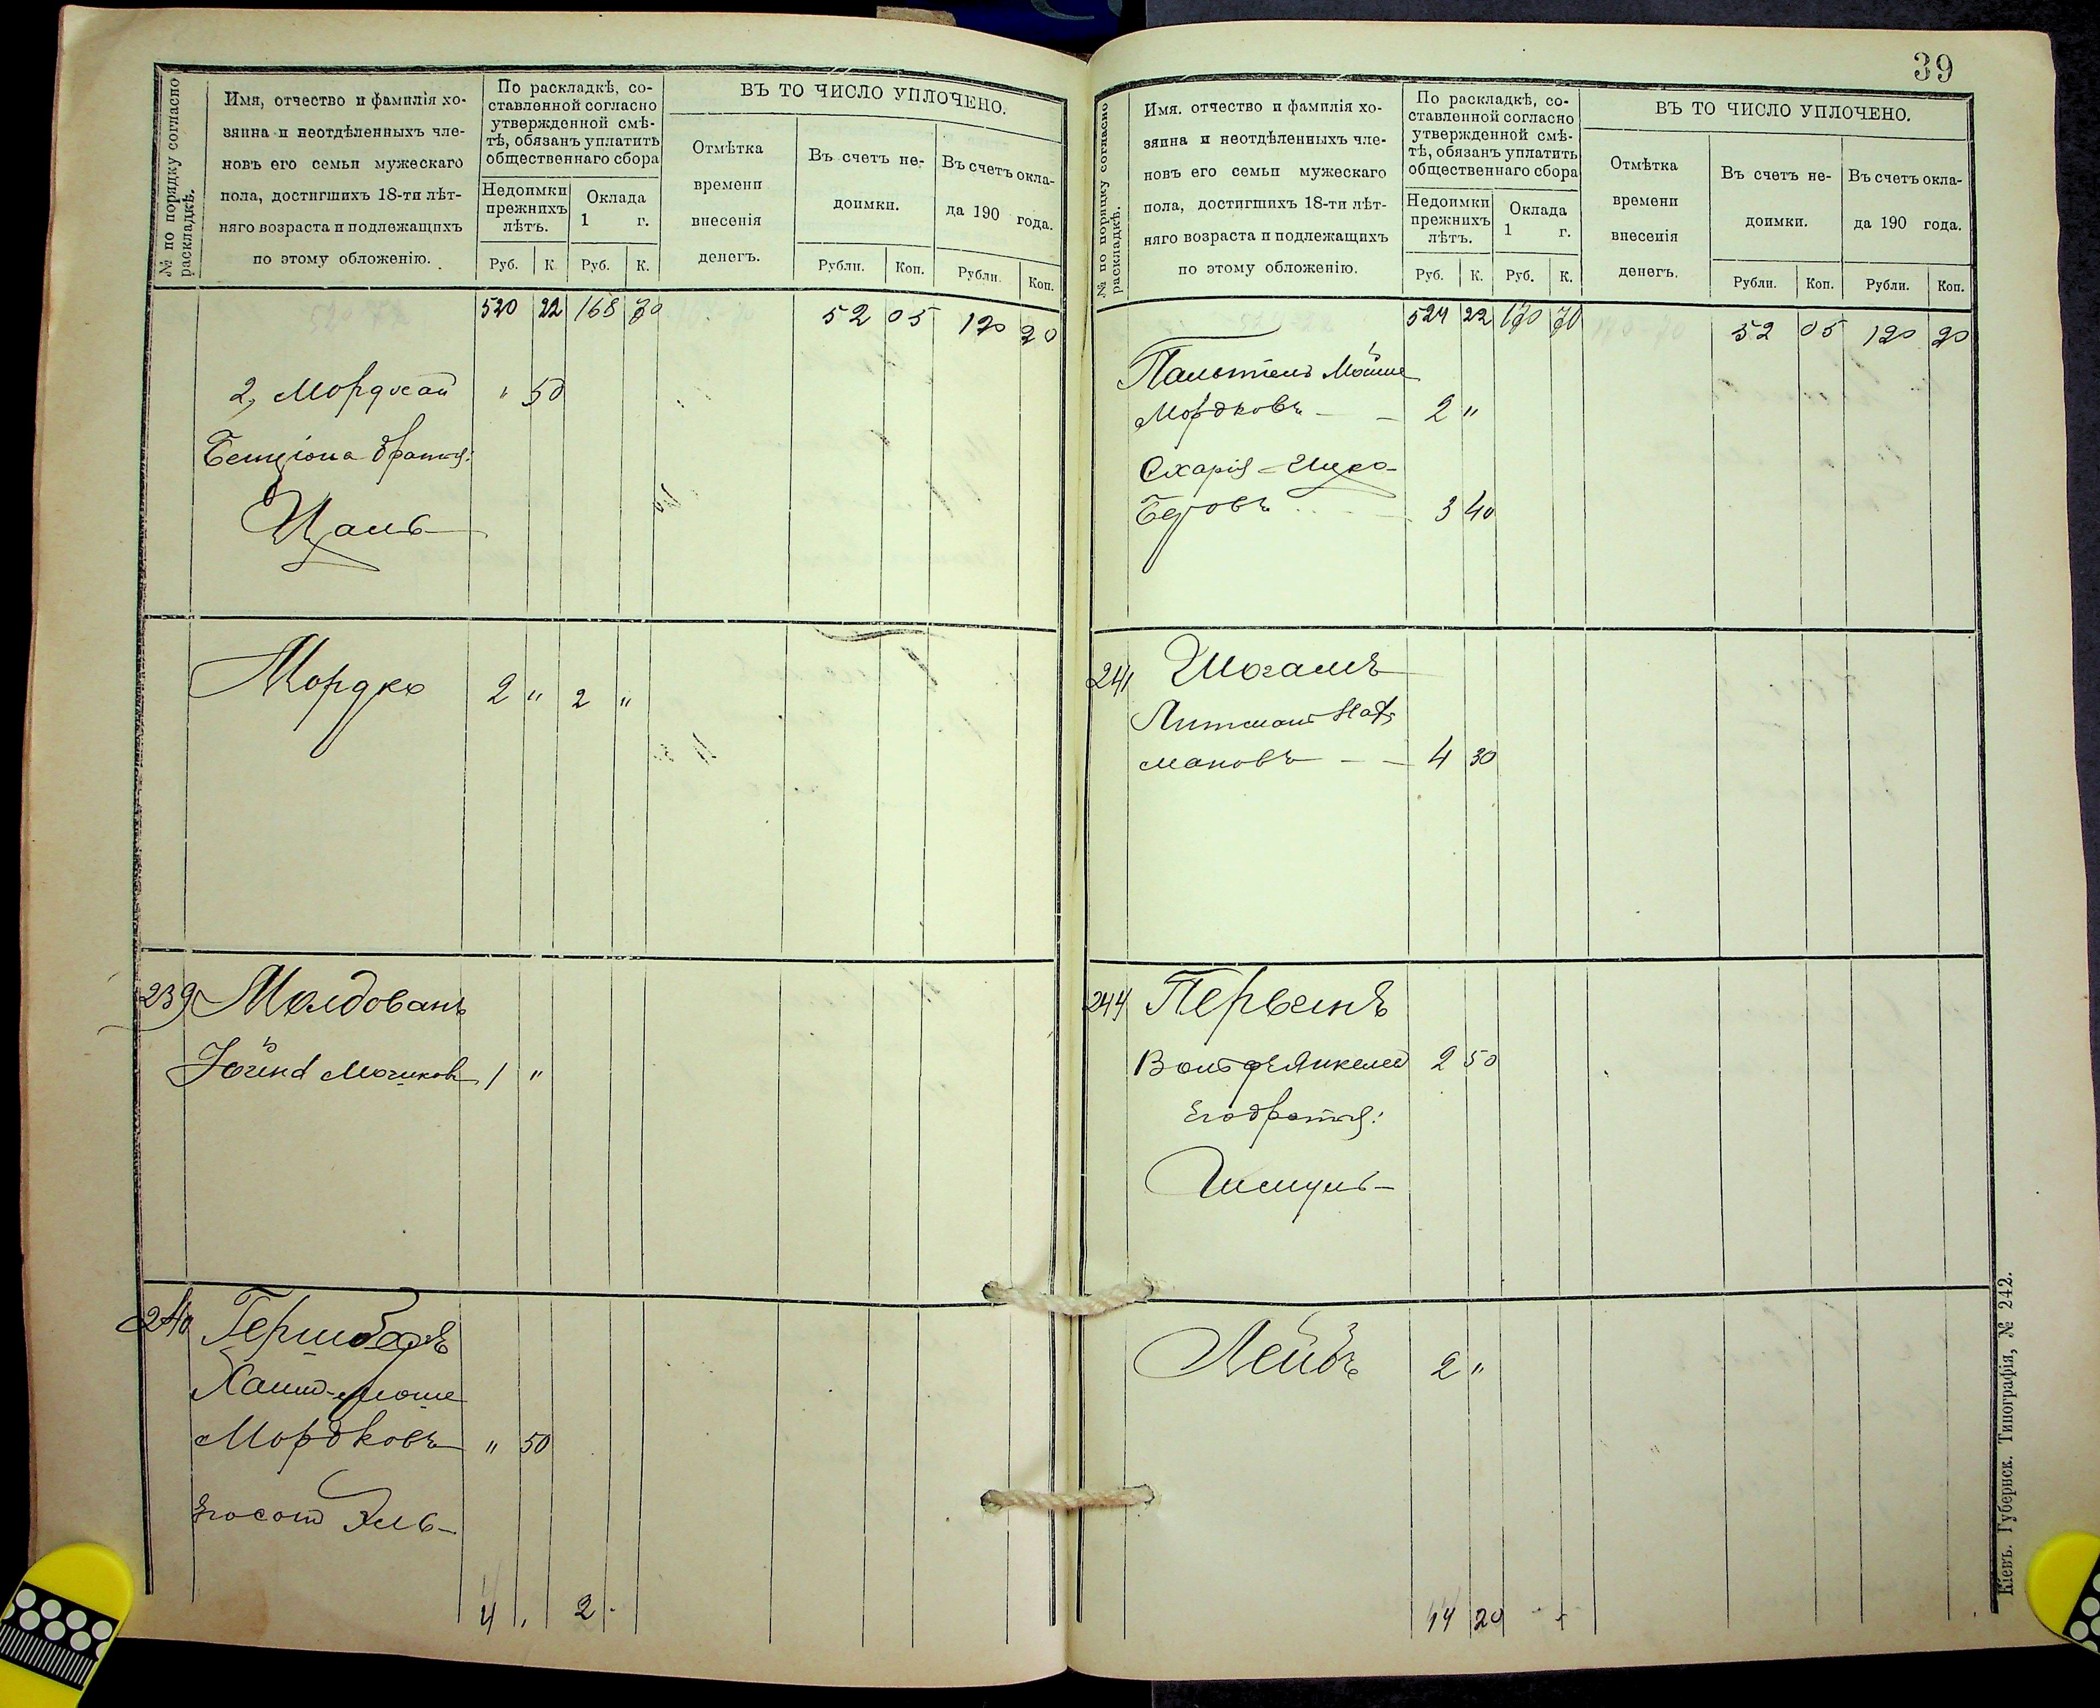 № по порядку согласно раскладкѣ.
Имя, отчество и фамилія хо-
зяина и неотдѣленныхъ чле-
новъ его семьи мужескаго
пола, достигшихъ 18-ти лѣт-
няго возраста и подлежащихъ
по этому обложенію.
По раскладкѣ, со-
ставленной согласно
утвержденной смѣ-
тѣ, обязанъ уплатить
общественнаго сбора
Недоимки
прежнихъ
лѣтъ.
Оклада
1 г.
Руб. К. Руб. К.
ВЪ ТО ЧИСЛО УПЛОЧЕНО.
Отмѣтка
времени
внесенія
денегъ.
Въ счетъ не-
доимки.
Въ счетъ окла-
да 190 года.
Рубли. Коп. Рубли. Коп.
520 22 168 70 52 05 120 20
2, Мордхай " 50
Бенціона братья:
Цаль
Мордко 2 " 2 "
239 Молдованъ
1 "
240
Мордковъ " 50
4 . 2 .
39
№ по порядку согласно раскладкѣ.
Имя. отчество и фамилія хо-
зяина и неотдѣленныхъ чле-
новъ его семьи мужескаго
пола, достигшихъ 18-ти лѣт-
няго возраста и подлежащихъ
по этому обложенію.
По раскладкѣ, со-
ставленной согласно
утвержденной смѣ-
тѣ, обязанъ уплатить
общественнаго сбора
Недоимки
прежнихъ
лѣтъ.
Оклада
1 г.
Руб. К. Руб. К.
ВЪ ТО ЧИСЛО УПЛОЧЕНО.
Отмѣтка
времени
внесенія
денегъ.
Въ счетъ не-
доимки.
Въ счетъ окла-
да 190 года.
Рубли. Коп. Рубли. Коп.
524 22 170 70 52 05 120 20
Мойше
Мордковъ 2 "
Ицко
Беровъ 3 40
241
мановъ 4 30
244
2 50
Его братья:
Шмуль
Лейбъ 2 "
14 20
Кіевъ. Губернск. Типографія, № 242.